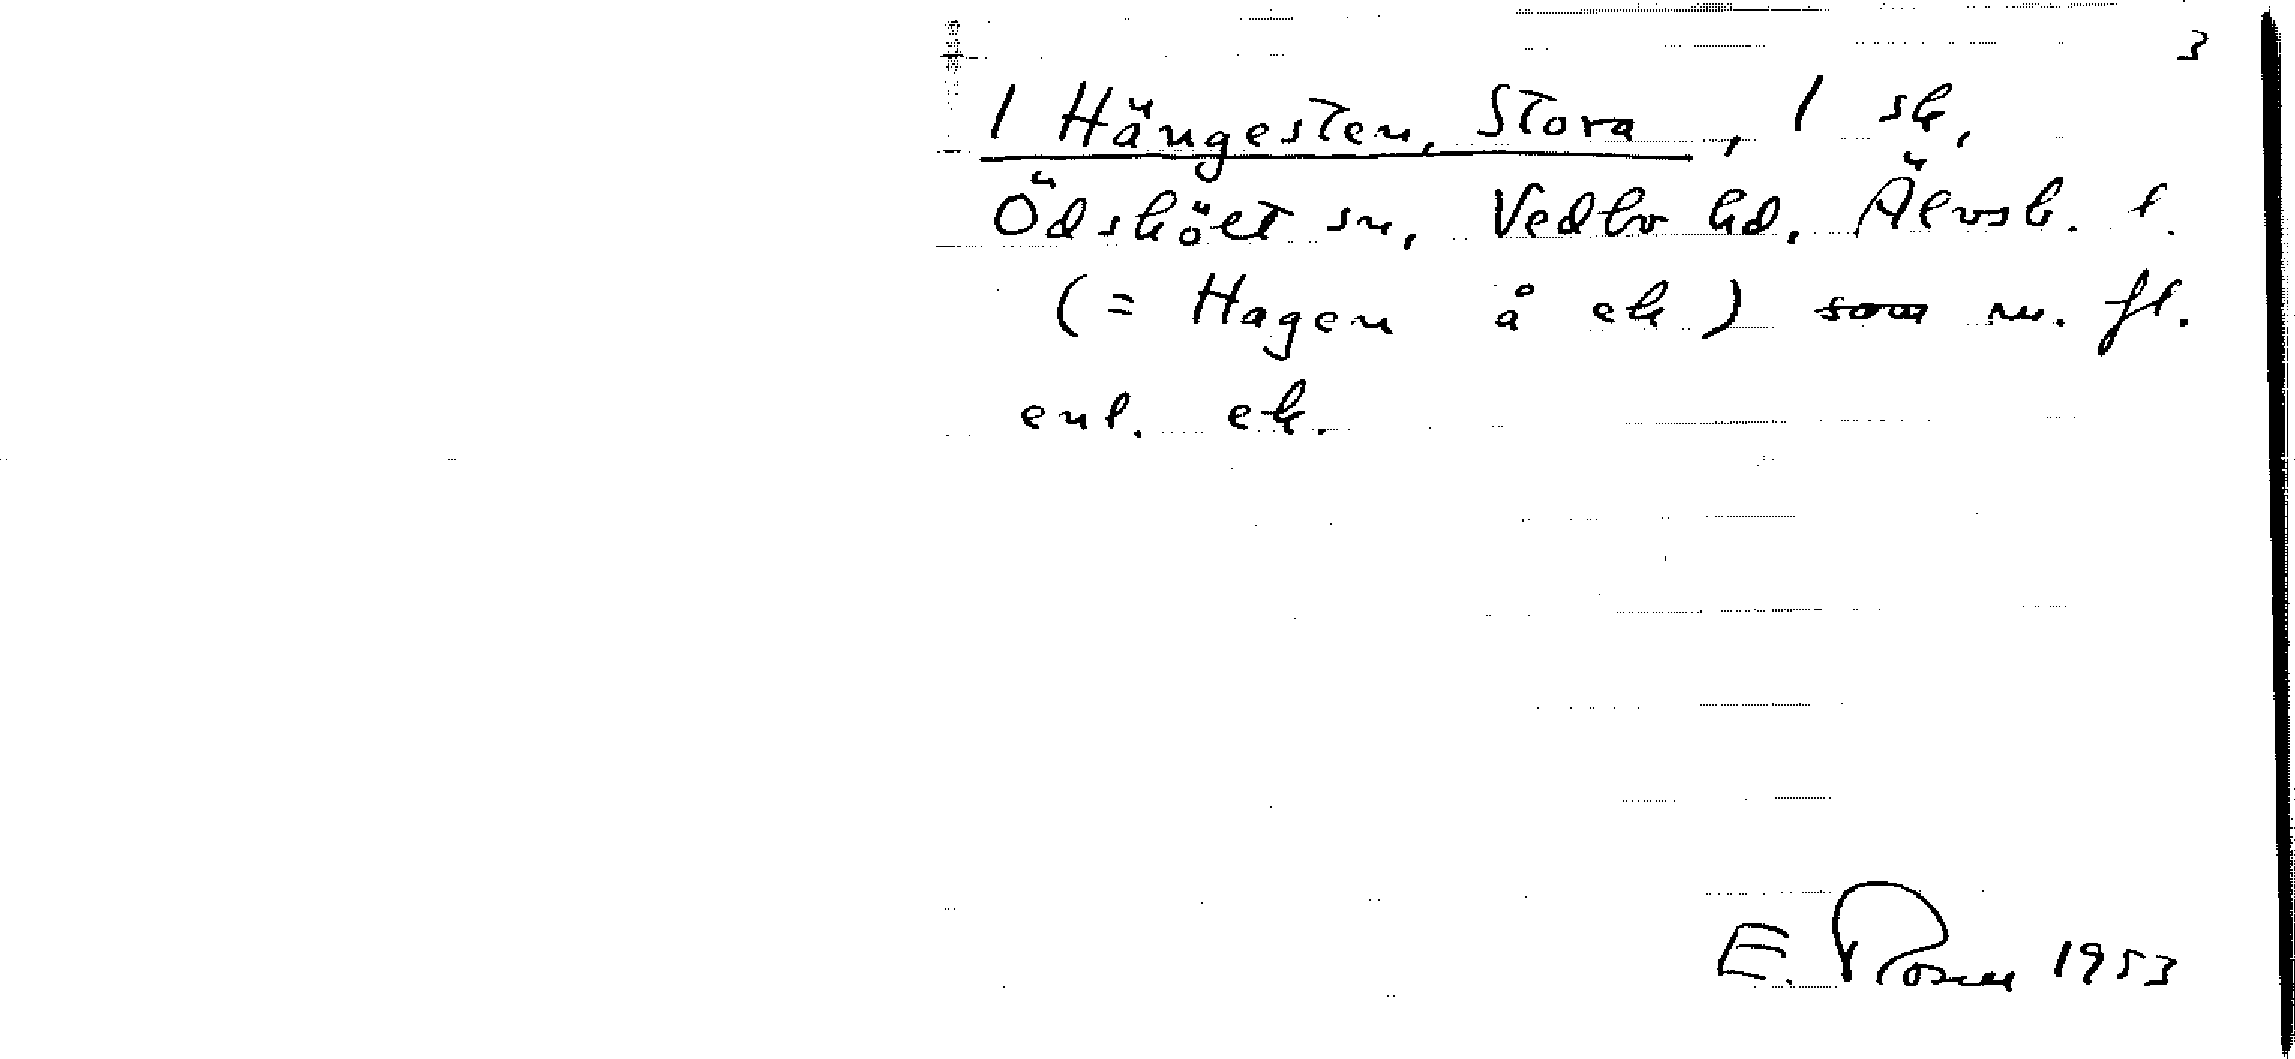 3
1 Hängesten, Stora, 1 sk,
Ödsköлt sn, Vedbo hd, Älvsb. l.
(= Hagen å ek) som m. fl.
enl. ek.
E. Rosell 1953